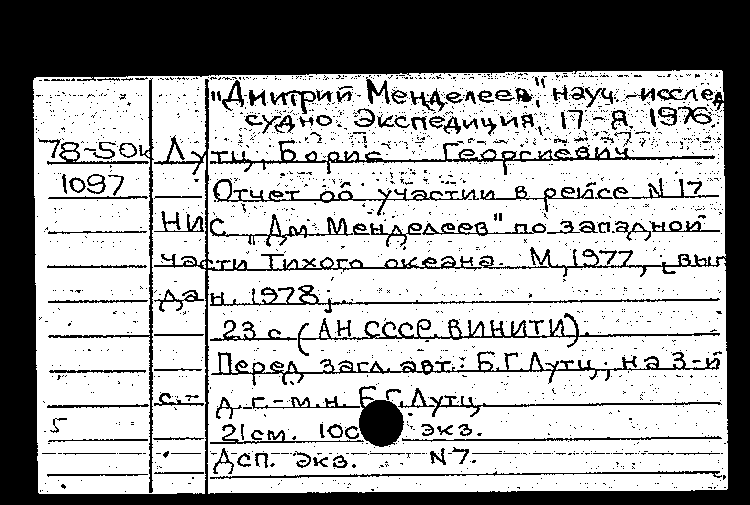 "Дмитрий Менделеев", науч.-исслед
судно. Экспедиция, 17-я 1976
78-50к Лутц, Борис Георгиевич
1097 Отчет об участии в рейсе N 17
НИС "Дм. Менделеев" по западной
части Тихого океана. М., 1977, [вып
дан. 1978].
23 с. (АН СССР. ВИНИТИ).
Перед загл. авт.: Б.Г. Лутц; на 3-й
с.- д. г.-м.н. Б.Г. Лутц.
5 21 см. экз.
Дсп. экз. N 7.